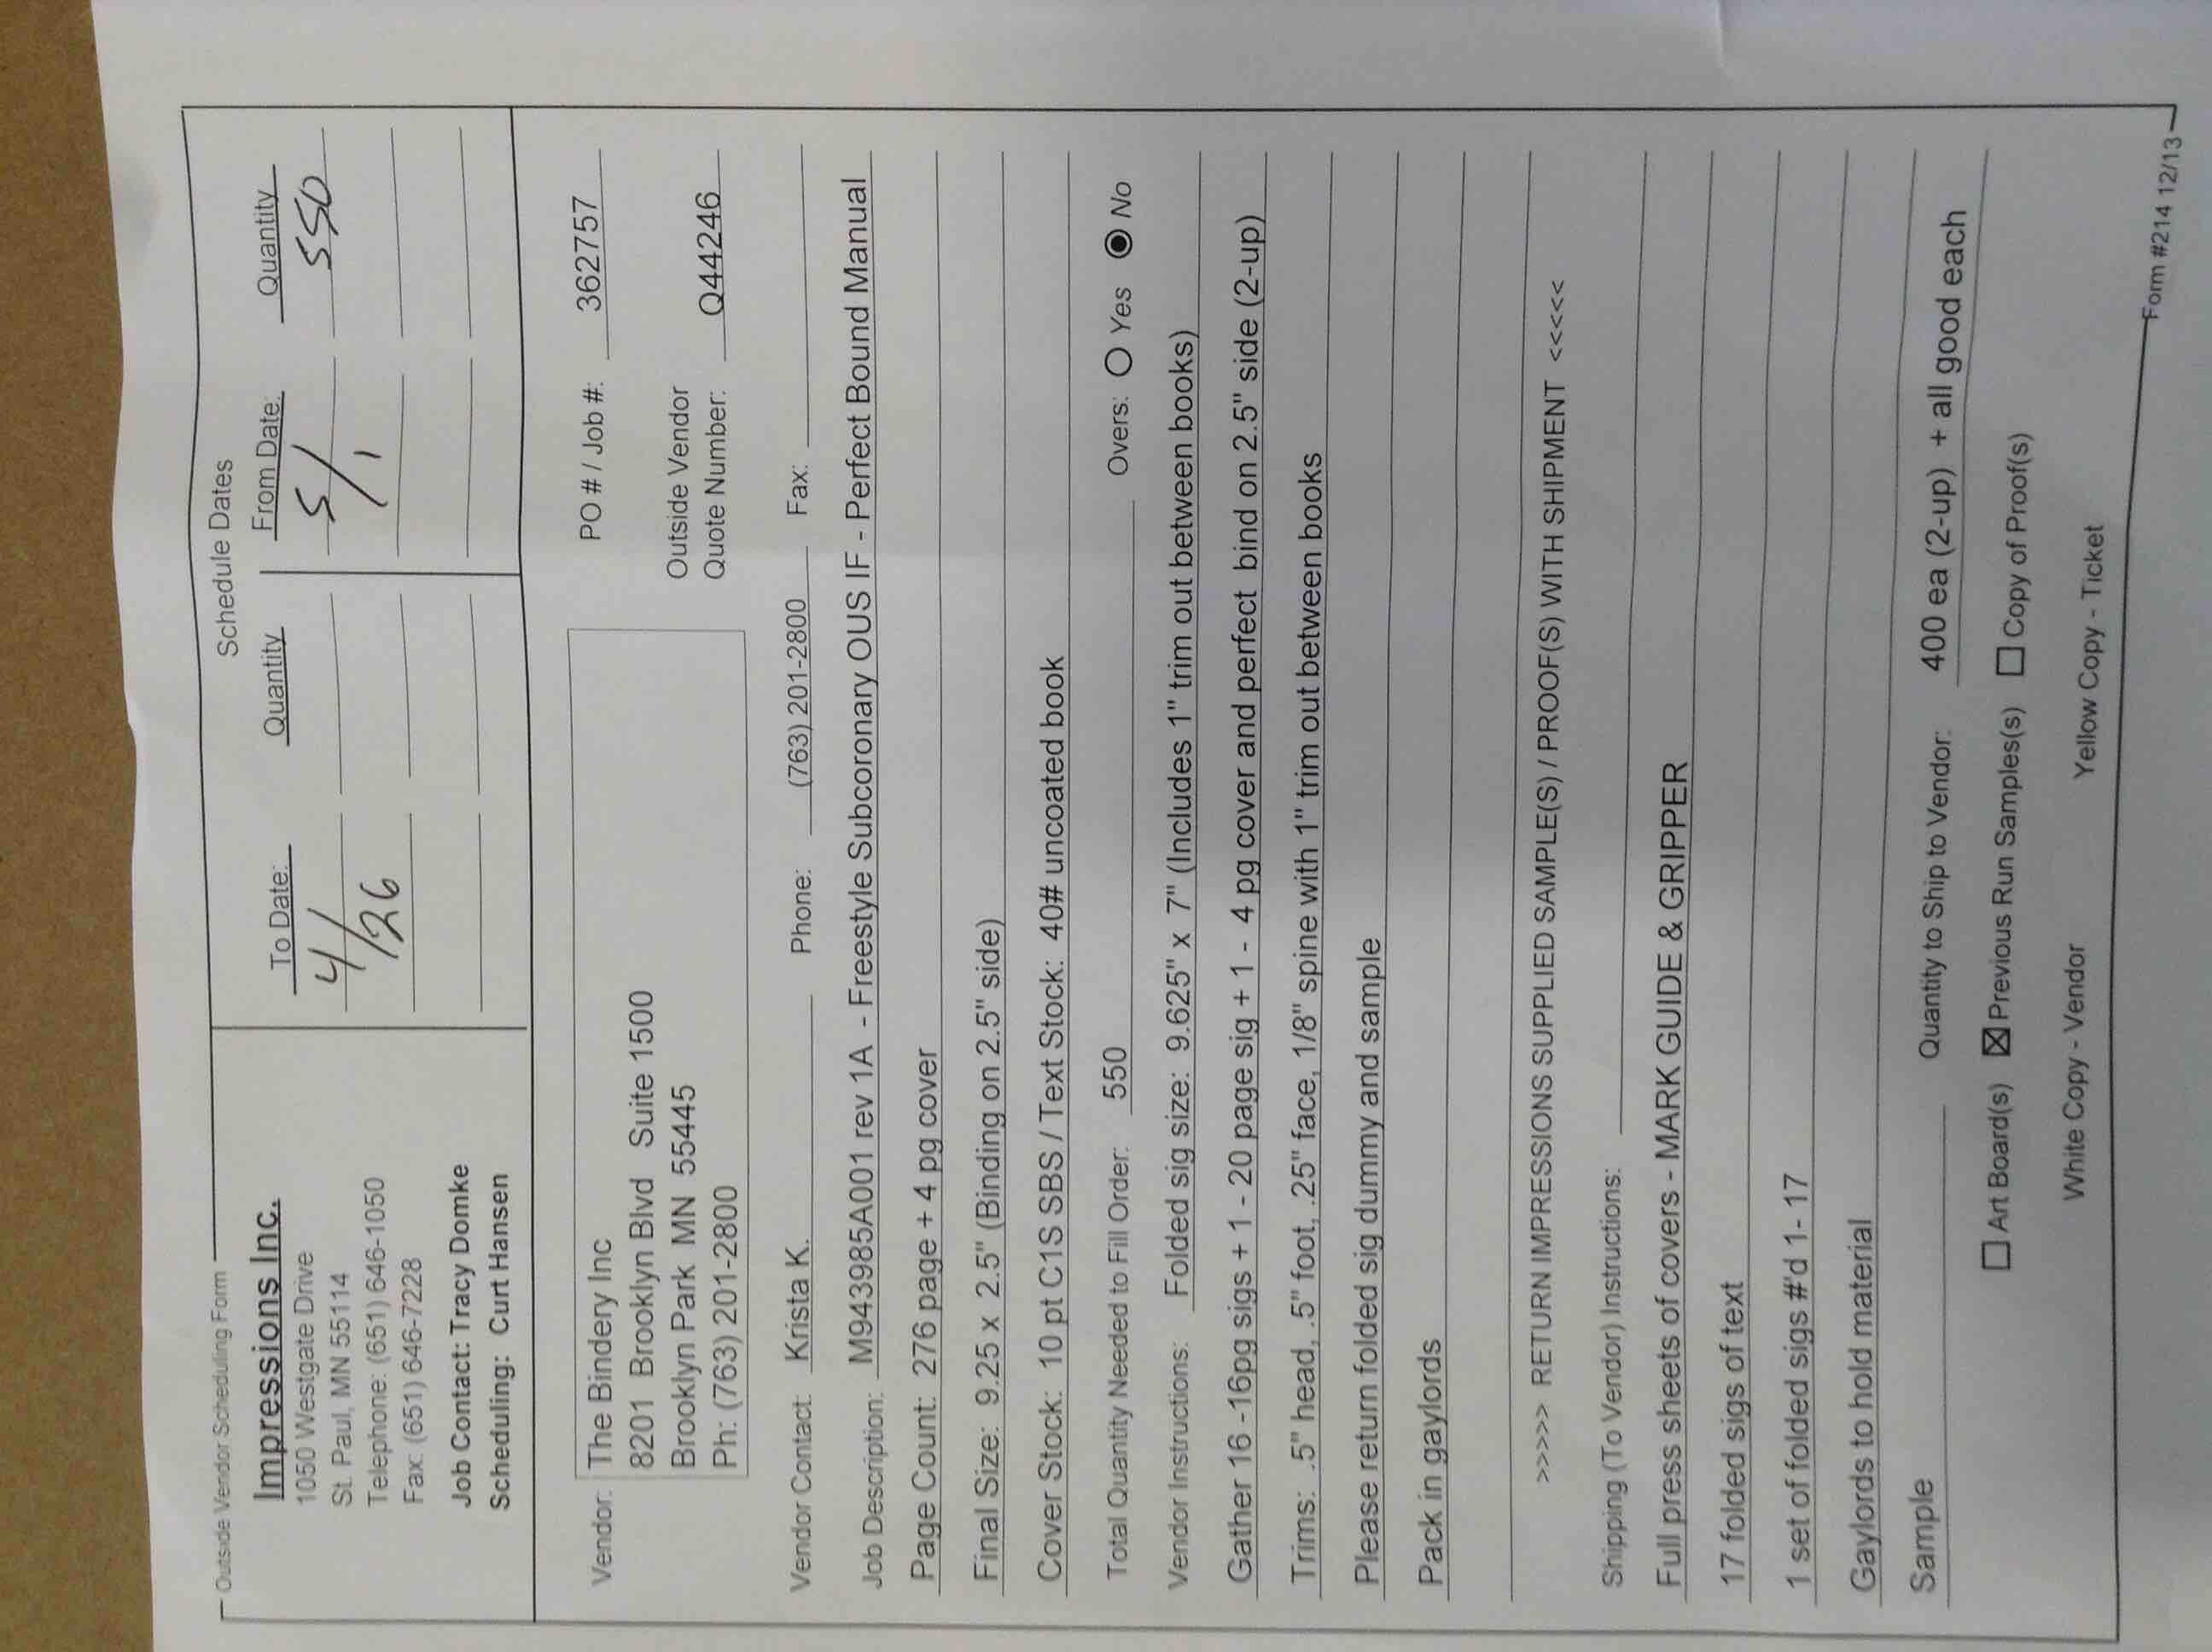 Outside Vendor Scheduling Form
Impressions Inc.
1050 Westgate Drive
St. Paul, MN 55114
Telephone: (651) 646-1050
Fax: (651) 646-7228
Job Contact: Tracy Domke
Scheduling: Curt Hansen
Schedule Dates
To Date: Quantity From Date: Quantity
4/26 5/1 550
Vendor: The Bindery Inc
8201 Brooklyn Blvd Suite 1500
Brooklyn Park MN 55445
Ph: (763) 201-2800
PO # / Job #: 362757
Outside Vendor
Quote Number: Q44246
Vendor Contact: Krista K. Phone: (763) 201-2800 Fax:
Job Description: M943985A001 rev 1A - Freestyle Subcoronary OUS IF - Perfect Bound Manual
Page Count: 276 page + 4 pg cover
Final Size: 9.25 x 2.5" (Binding on 2.5" side)
Cover Stock: 10 pt C1S SBS / Text Stock: 40# uncoated book
Total Quantity Needed to Fill Order: 550 Overs: Yes No
Vendor Instructions: Folded sig size: 9.625" x 7" (Includes 1" trim out between books)
Gather 16 -16pg sigs + 1 - 20 page sig + 1 - 4 pg cover and perfect bind on 2.5" side (2-up)
Trims: .5" head, .5" foot, .25" face, 1/8" spine with 1" trim out between books
Please return folded sig dummy and sample
Pack in gaylords
>>>>> RETURN IMPRESSIONS SUPPLIED SAMPLE(S) / PROOF(S) WITH SHIPMENT <<<<<
Shipping (To Vendor) Instructions:
Full press sheets of covers - MARK GUIDE & GRIPPER
17 folded sigs of text
1 set of folded sigs #'d 1- 17
Gaylords to hold material
Sample Quantity to Ship to Vendor: 400 ea (2-up) + all good each
Art Board(s) Previous Run Samples(s) Copy of Proof(s)
White Copy - Vendor Yellow Copy - Ticket
Form #214 12/13